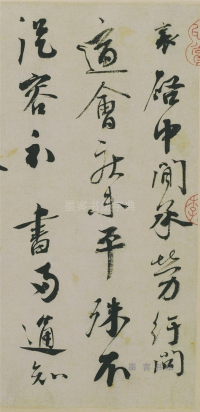 襄啓中間承勞行問
適會疾未平殊不
從容所 書安通知